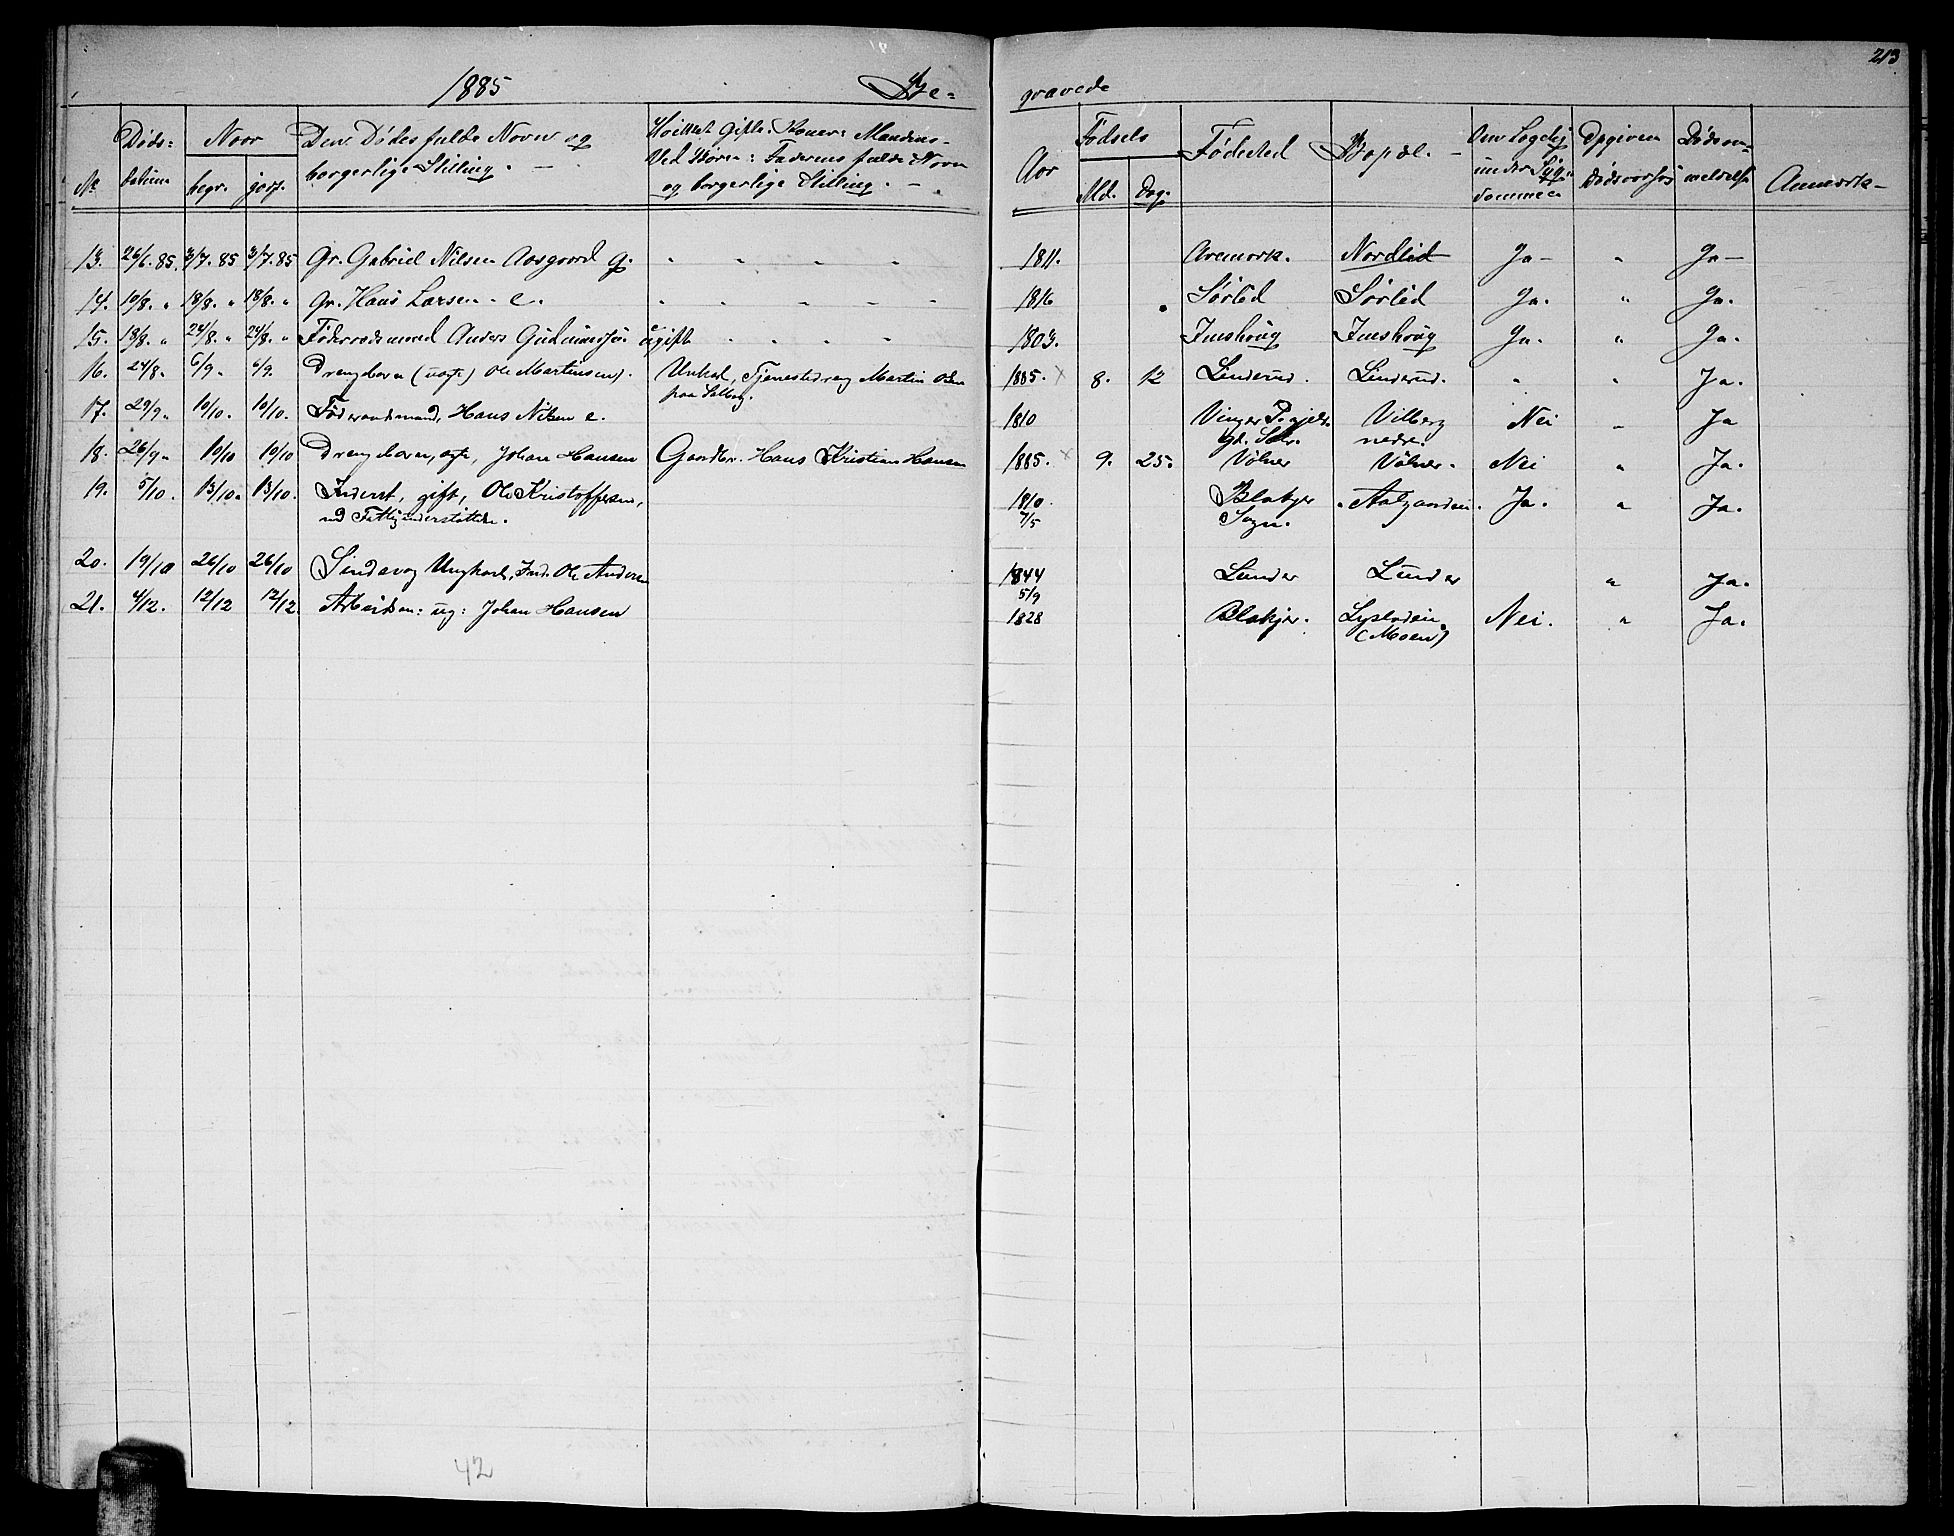 213
1885 Be- gravede
No. Døds- datum Naar begr. jordf. Den Dødes fulde Navn og borgerlige Stilling. Hvilket Gifte: Koner: Mandens Ved Børn: Faderens fulde Navn og borgerlige Stilling. Fødsels Aar Md. Dag. Fødested Bopæl. Om Lægehj. under Sygdommen Opgiven Dødsaarsag Dødsanmeldelse Anmærk-
13. 26/6. 85. 3/7. 85 3/7. 85 Gr. Gabriel Nilsen Aasgaard g. " " " " 1811. Aremark. Nordlid Ja- " Ja-
14. 10/8. " 18/8. " 18/8. " Gr. Hans Larsen - e. " " " " 1816 Sørlid Sørlid Ja. " Ja.
15. 18/8. " 24/8. " 24/8. " Føderaadsmand Anders Gudmundsen ugift " " " " 1803. Imshoug Imshoug Ja. " Ja.
16. 24/8. 6/9. 6/9. Drengebarn (uægte) Ole Martinsen). Unkarl, Tjenestedreng Martin Olsen 1885. x 8. 12 Linderud. Linderud. " " Ja.
paa
17. 29/9. 10/10. 10/10. Føderaadsmand, Hans Nilsen e. 1810 Vinger Pgjeld. Vilberg Nei " Ja
nedre.
18. 26/9. 10/10 10/10 Drengebarn, ægte, Johan Hansen Gaardbr. Hans Kristian Hansen 1885. x 9. 25. Vølner Vølner. Nei " Ja.
19. 5/10. 13/10. 13/10. Inderst, gift, Ole Kristoffersen, 1810 Blakjer Ja. " Ja.
ved Fattigunderstøttelse. 7/5 Sogn.
20. 19/10 26/10 26/10 Sindssvag Ungkarl, Ind. Ole Andersen 1844 Lunder Lunder " Ja.
5/9
21. 4/12. 12/12 12/12. Arbeidsm: ug: Johan Hansen 1828 Blakjer. Nei. " Ja.
(Moen)
42